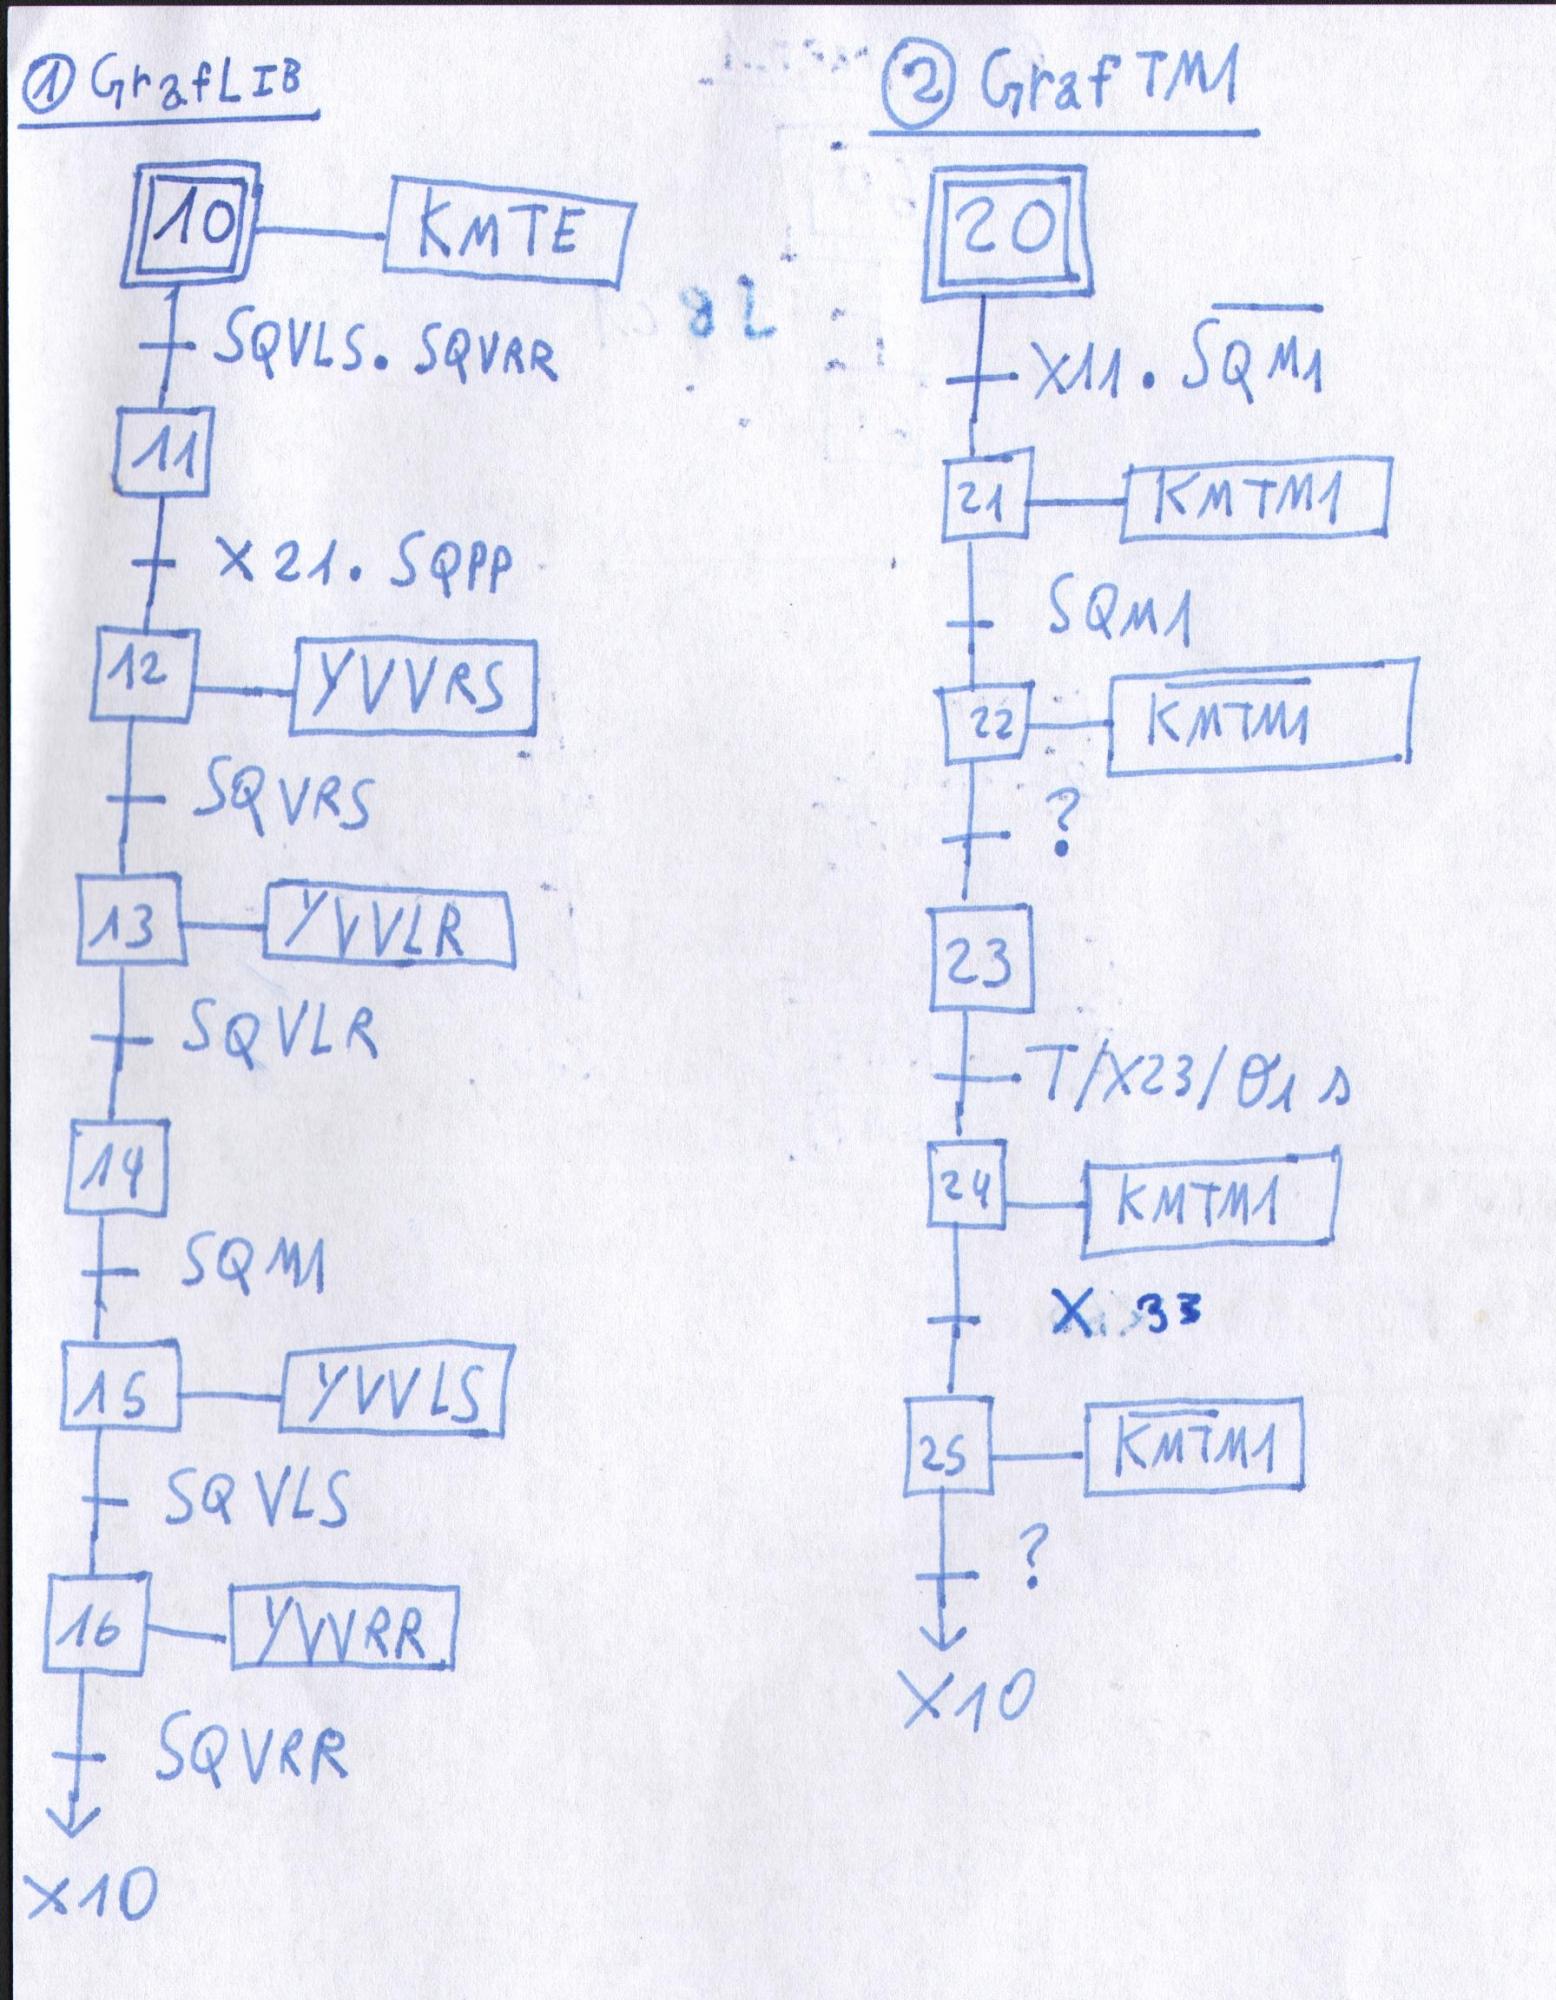 ① GrafLIB
10 KMTE
SQVLS. SQVRR
11
X21. SQPP
12 YVVRS
SQVRS
13 YVVLR
SQVLR
14
SQM1
15 YVVLS
SQVLS
16 YVVRR
SQVRR
X10
② Graf TM1
20
X11. S̅Q̅M̅1̅
21 KMTM1
SQM1
22 K̅M̅T̅M̅1̅
?
23
T/X23/01 s
24 KMTM1
X 33
25 K̅M̅T̅M̅1̅
?
X10